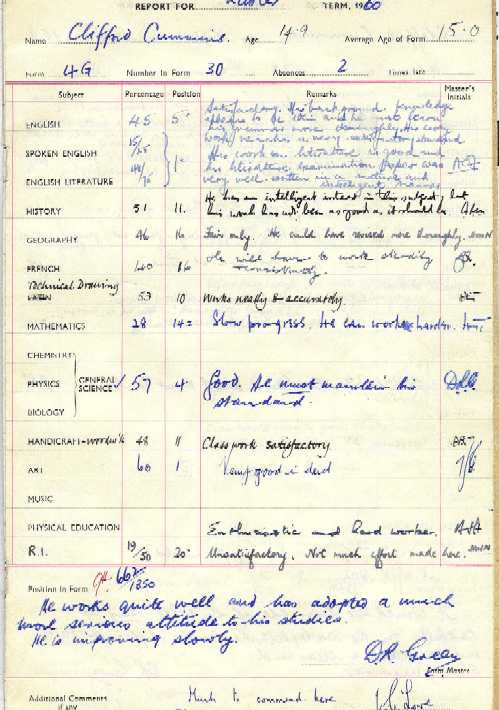 REPORT FOR TERM, 1960
Name Clifford Cummins. Age 14.9 Average Age of Form 15.0
Form 4G Number In Form 30 Absences 2 Times late
Subject Percentage Position Remarks Master's Initials
ENGLISH 45 5= Satisfactory. His background knowledge
appears to be thin and he must learn
his grammar more thoroughly. His essay
work reaches a very satisfactory standard
SPOKEN ENGLISH 15/25 His work in literature is good and
his literature examination paper was
ENGLISH LITERATURE 1= very well written in a mature and
intelligent manner
HISTORY 51 11. He has an intelligent interest in this subject, but
his work has not been as good as it should be.
GEOGRAPHY 46 16 Fair only. He could have revised more thoroughly.
FRENCH 40 16 He will have to work steadily
consistently.
Technical Drawing
LATIN 53 10 Works neatly & accurately.
MATHEMATICS 28 14= Slow progress. He can work harder.
CHEMISTRY
PHYSICS GENERAL SCIENCE ✓ 57 4 Good. He must maintain his
standard.
BIOLOGY
HANDICRAFT-Woodwk 48 11 Classwork satisfactory
ART 60 1 Very good indeed
MUSIC
PHYSICAL EDUCATION Enthusiastic and hard worker.
R.I. 19/50 20= Unsatisfactory. Not much effort made here.
Position in Form 9th. 662/1350
He works quite well and has adopted a much
more serious attitude to his studies.
He is improving slowly.
D.R. Green
Form Master
Additional Comments Much to commend here
if any